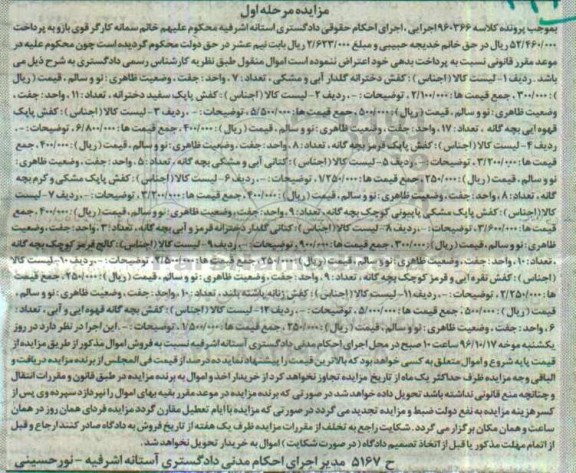 مزایده مرحله اول
بموجب پرونده کلاسه ۹۶۰۳۶۶ اجرایی، اجرای احکام حقوقی دادگستری آستانه اشرفیه محکوم علیهم خانم سمانه کارگر قوی بازو به پرداخت
۵۲/۴۶۰/۰۰۰ ریال در حق خانم خدیجه حبیبی و مبلغ ۲/۶۲۳/۰۰۰ ریال بابت نیم عشر در حق دولت محکوم گردیده است چون محکوم علیه در
موعد مقرر قانونی نسبت به پرداخت بدهی خود اعتراض ننموده است اموال منقول طبق نظریه کارشناس رسمی دادگستری به شرح ذیل می
باشد. ردیف ۱- لیست کالا (اجناس): کفش دخترانه گلدار آبی و مشکی، تعداد: ۷، واحد: جفت، وضعیت ظاهری: نو و سالم، قیمت (ریال
): ۳۰۰/۰۰۰، جمع قیمت ها: ۲/۱۰۰/۰۰۰، توضیحات: -. ردیف ۲- لیست کالا (اجناس): کفش پاپک سفید دخترانه، تعداد: ۱۱، واحد: جفت،
وضعیت ظاهری: نو و سالم، قیمت (ریال): ۵۰۰/۰۰۰، جمع قیمت ها: ۵/۵۰۰/۰۰۰، توضیحات: -. ردیف ۳- لیست کالا (اجناس): کفش پاپک
قهوه ایی بچه گانه، تعداد: ۱۷، واحد: جفت، وضعیت ظاهری: نو و سالم، قیمت (ریال): ۴۰۰/۰۰۰، جمع قیمت ها: ۶/۸۰۰/۰۰۰، توضیحات: -.
ردیف ۴- لیست کالا (اجناس): کفش پاپک قرمز بچه گانه، تعداد: ۸، واحد: جفت، وضعیت ظاهری: نو و سالم، قیمت (ریال): ۴۰۰/۰۰۰، جمع
قیمت ها: ۳/۲۰۰/۰۰۰، توضیحات: -. ردیف ۵- لیست کالا (اجناس): کتانی آبی و مشکی بچه گانه، تعداد: ۵، واحد: جفت، وضعیت ظاهری:
نو و سالم، قیمت (ریال): ۲۵۰/۰۰۰، جمع قیمت ها: ۱/۲۵۰/۰۰۰، توضیحات: -. ردیف ۶- لیست کالا (اجناس): کفش پاپک مشکی و کرم بچه
گانه، تعداد: ۸، واحد: جفت، وضعیت ظاهری: نو و سالم، قیمت (ریال): ۴۰۰/۰۰۰، جمع قیمت ها: ۳/۲۰۰/۰۰۰، توضیحات: -. ردیف ۷- لیست
کالا (اجناس): کفش پاپک مشکی پاپیونی کوچک بچه گانه، تعداد: ۹، واحد: جفت، وضعیت ظاهری: نو و سالم، قیمت (ریال): ۴۰۰/۰۰۰، جمع
قیمت ها: ۳/۶۰۰/۰۰۰، توضیحات: -. ردیف ۸- لیست کالا (اجناس): کتانی گلدار دخترانه قرمز و آبی بچه گانه، تعداد: ۳، واحد: جفت، وضعیت
ظاهری: نو و سالم، قیمت (ریال): ۳۰۰/۰۰۰، جمع قیمت ها: ۹۰۰/۰۰۰، توضیحات: -. ردیف ۹- لیست کالا (اجناس): کالج قرمز کوچک بچه گانه
، تعداد: ۱۰، واحد: جفت، وضعیت ظاهری: نو و سالم، قیمت (ریال): ۲۵۰/۰۰۰، جمع قیمت ها: ۲/۵۰۰/۰۰۰، توضیحات: -. ردیف ۱۰- لیست کالا
(اجناس): کفش نقره ایی و قرمز کوچک بچه گانه، تعداد: ۹، واحد: جفت، وضعیت ظاهری: نو و سالم، قیمت (ریال): ۲۵۰/۰۰۰، جمع قیمت
ها: ۲/۲۵۰/۰۰۰، توضیحات: -. ردیف ۱۱- لیست کالا (اجناس): کفش زنانه پاشنه بلند، تعداد: ۱۰، واحد: جفت، وضعیت ظاهری: نو و سالم،
قیمت (ریال): ۵۰۰/۰۰۰، جمع قیمت ها: ۵/۰۰۰/۰۰۰، توضیحات: -. ردیف ۱۲- لیست کالا (اجناس): کفش بچه گانه قهوه ایی و آبی، تعداد:
۶، واحد: جفت، وضعیت ظاهری: نو و سالم، قیمت (ریال): ۲۵۰/۰۰۰، جمع قیمت ها: ۱/۵۰۰/۰۰۰، توضیحات: -. این اجرا در نظر دارد در روز
یکشنبه مورخه ۹۶/۱۰/۱۷ ساعت ۱۰ صبح در محل اجرای احکام مدنی دادگستری آستانه اشرفیه نسبت به فروش اموال مذکور از طریق مزایده از
قیمت پایه شروع و اموال متعلق به کسی خواهد بود که بالاترین قیمت را پیشنهاد نماید ده درصد از قیمت فی المجلس از برنده مزایده دریافت و
الباقی وجه مزایده ظرف حداکثر یک ماه از تاریخ مزایده تجاوز نخواهد کرد از خریدار اخذ و اموال به برنده مزایده در طبق قانون و مقررات انتقال
و چنانچه منع قانونی نداشته باشد تحویل داده خواهد شد در صورتی که برنده مزایده در موعد مقرر بقیه بهای اموال را نپردازد سپرده وی پس از
کسر هزینه مزایده به نفع دولت ضبط و مزایده تجدید می گردد در صورتی که مزایده با ایام تعطیل مقارن گردد مزایده فردای همان روز در همان
ساعت و همان مکان برگزار می گردد. شکایت راجع به تخلف از مقررات مزایده ظرف یک هفته از تاریخ فروش به دادگاه صادر کننده ارجاع و قبل
از اتمام مهلت مذکور یا قبل از اتخاذ تصمیم دادگاه (در صورت شکایت) اموال به خریدار تحویل نخواهد شد.
ح ۵۱۶۷ مدیر اجرای احکام مدنی دادگستری آستانه اشرفیه - نورحسینی